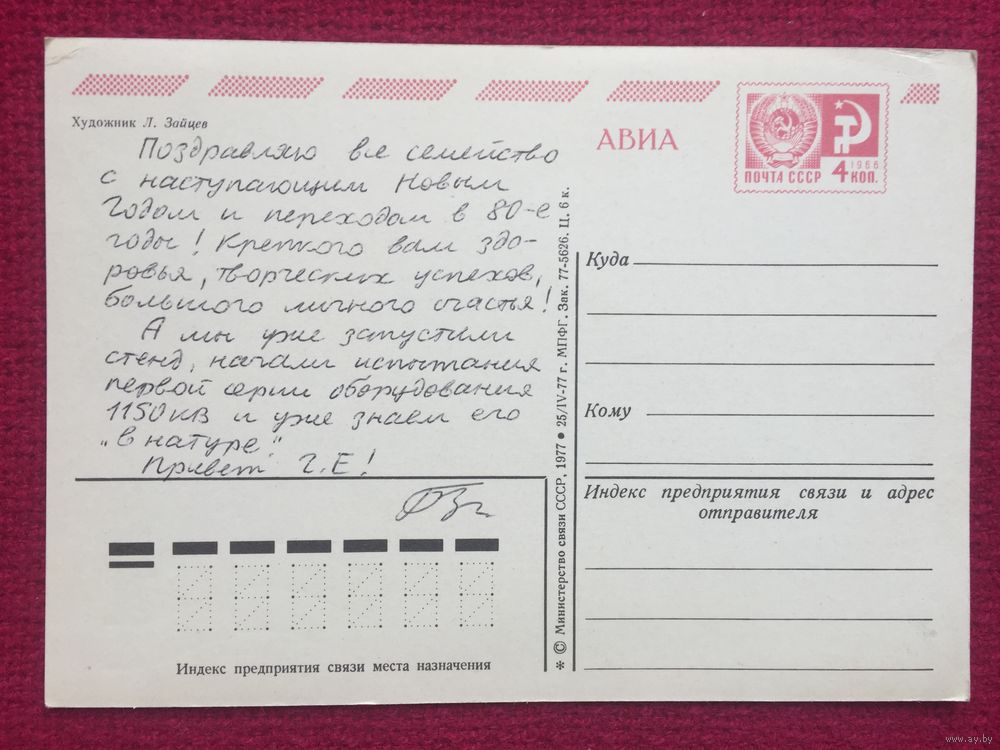 Художник Л. Зайцев
АВИА
ПОЧТА СССР
1966
4 КОП.
Поздравляю все семейство
с наступающим Новым
Годом и переходом в 80-е
годы! Крепкого вам здо-
ровья, творческих успехов,
большого личного счастья!
А мы уже запустили
стенд, начали испытания
первой серии оборудования
1150 кв и уже знаем его
„в натуре".
Привет Г.Е!
Куда
Кому
Индекс предприятия связи и адрес
отправителя
Индекс предприятия связи места назначения
* © Министерство связи СССР, 1977 • 25/IV-77 г. МПФГ. Зак. 77-5626. Ц. 6 к.
www.ay.by